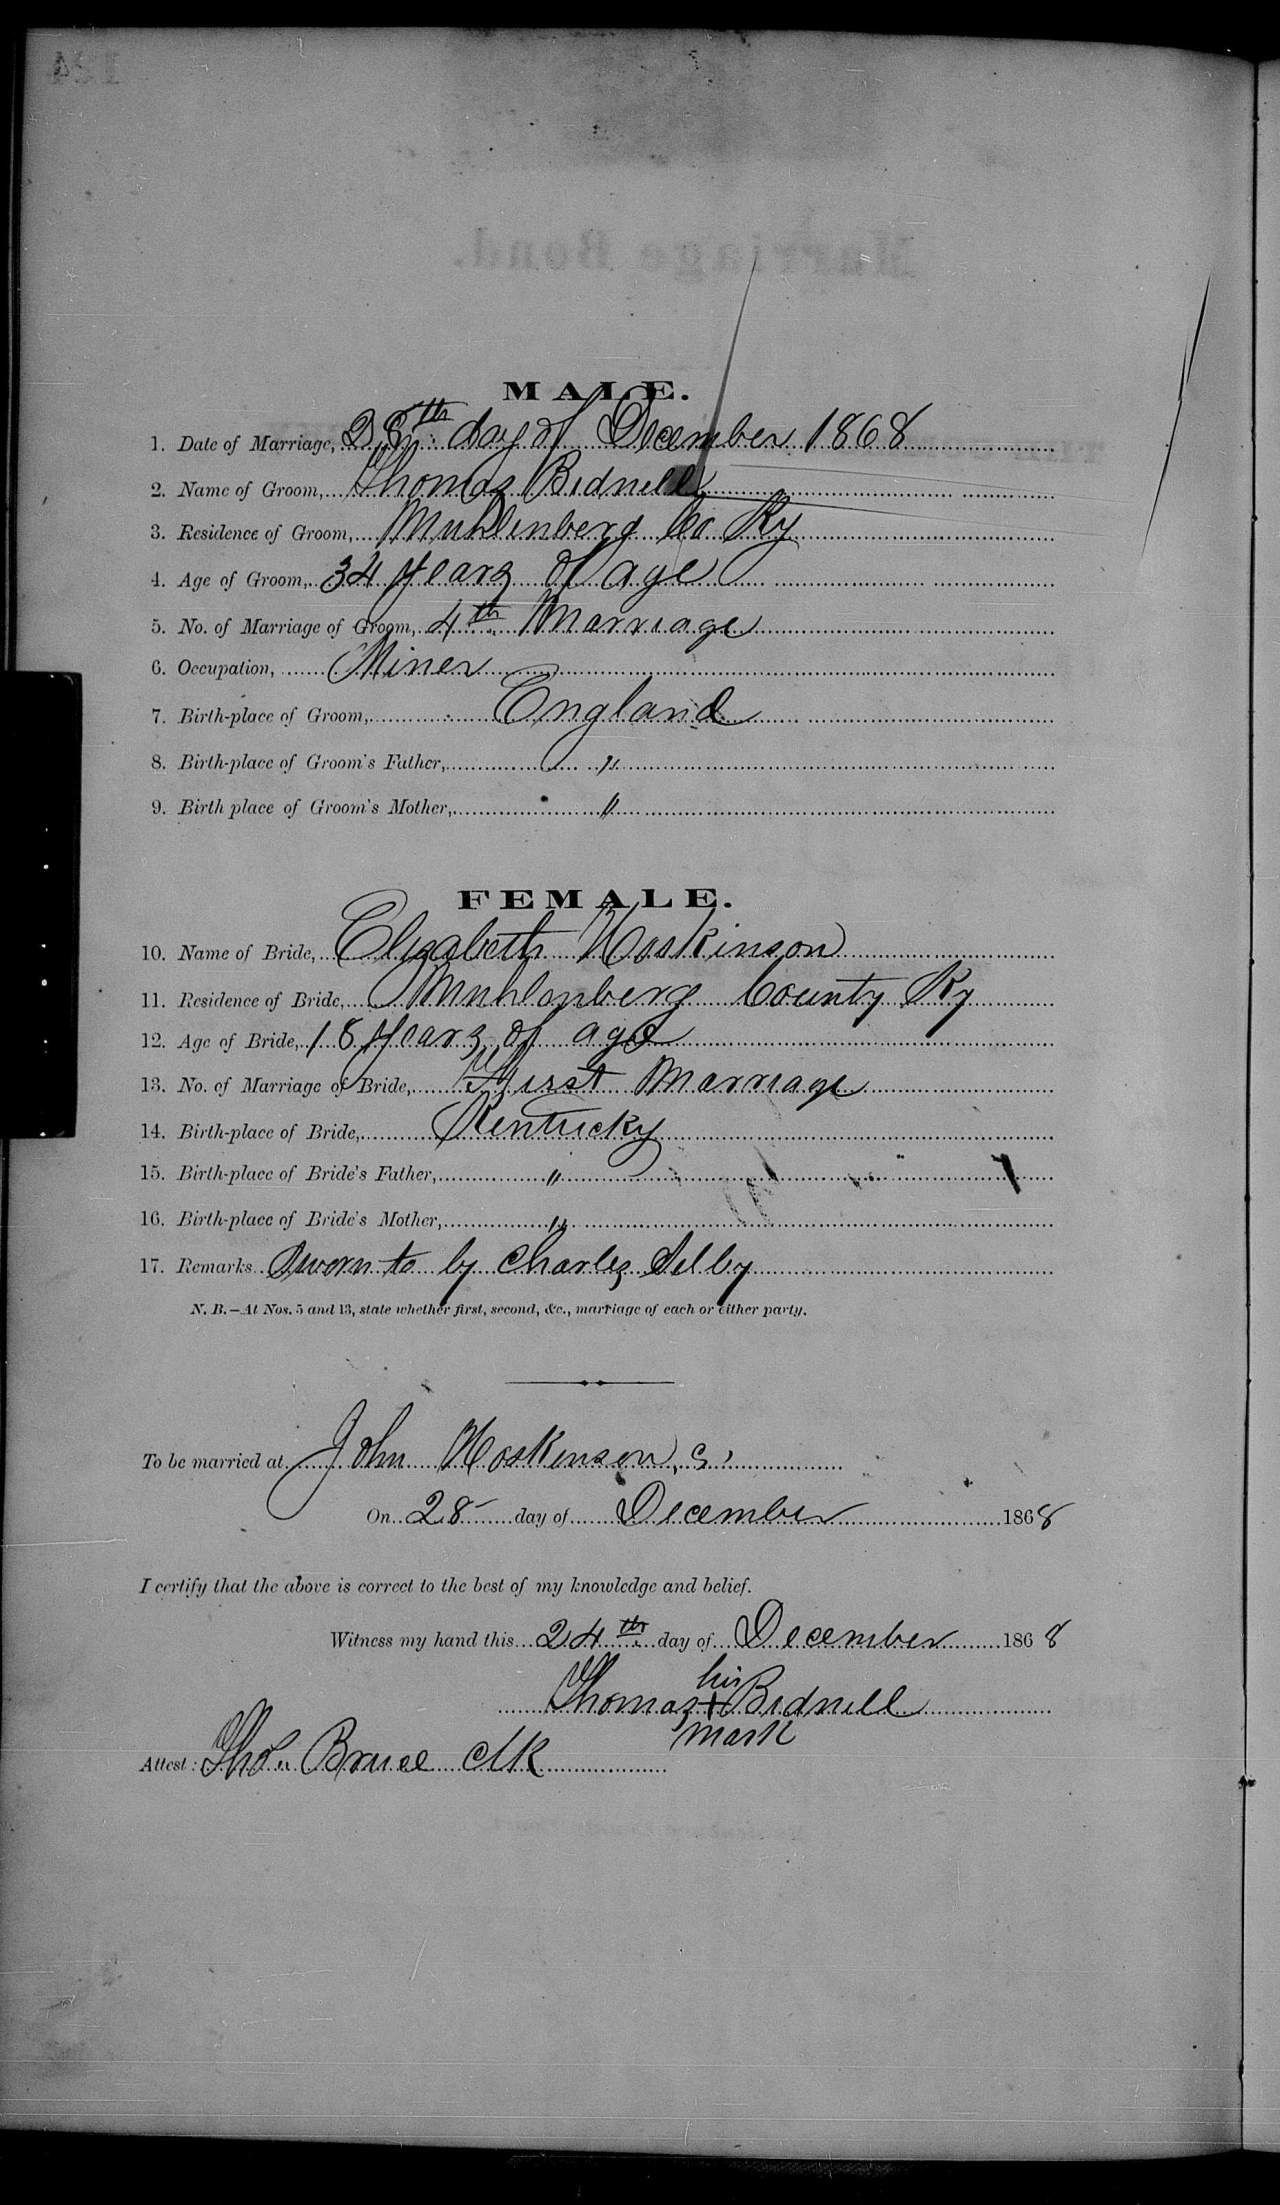 MALE.
1. Date of Marriage, 28th day of December 1868
2. Name of Groom, Thomas Bidnell
3. Residence of Groom, Muhlenberg Co Ky
4. Age of Groom, 34 years of age
5. No. of Marriage of Groom, 4th Marriage
6. Occupation, Miner
7. Birth-place of Groom, England
8. Birth-place of Groom's Father, "
9. Birth place of Groom's Mother, "
FEMALE.
10. Name of Bride, Elizabeth Hoskinson
11. Residence of Bride, Muhlenberg County Ky
12. Age of Bride, 18 years of age
13. No. of Marriage of Bride, First Marriage
14. Birth-place of Bride, Kentucky
15. Birth-place of Bride's Father, "
16. Birth-place of Bride's Mother, "
17. Remarks Sworn to by Charles Selby
N. B.—At Nos. 5 and 13, state whether first, second, &c., marriage of each or either party.
To be married at John Hoskinson,s
On 28 day of December 1868
I certify that the above is correct to the best of my knowledge and belief.
Witness my hand this 24th day of December 1868
his
Thomas + Bidnell
mark
Attest: Tho. Bruce clk